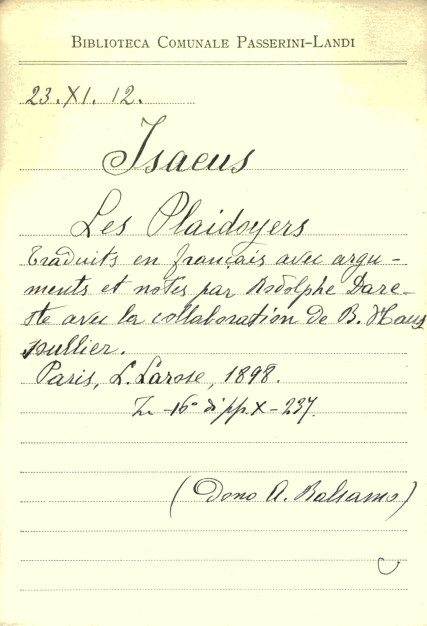 BIBLIOTECA COMUNALE PASSERINI-LANDI
23.XI.12.
Isaeus
Les Plaidoyers
traduits en français avec argu-
ments et notes par Rodolphe Dare-
ste avec la collaboration de B. Haus
soullier.
Paris, L. Larose, 1898.
In-16° di pp. X-237.
(Dono A. Balsamo)